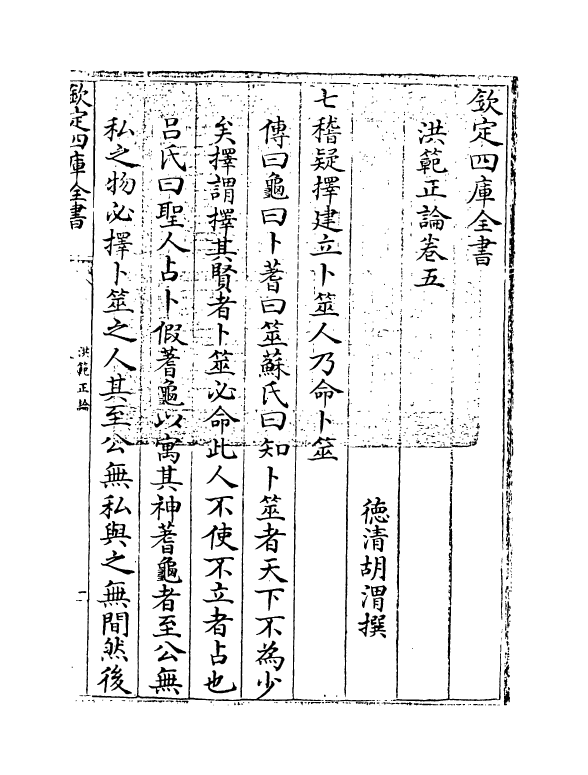 欽定四庫全書
洪範正論卷五
德清胡渭撰
七稽疑擇建立卜筮人乃命卜筮
傳曰龜曰卜蓍曰筮蘇氏曰知卜筮者天下不為少
矣擇謂擇其賢者卜筮必命此人不使不立者占也
呂氏曰聖人占卜假蓍龜以寓其神蓍龜者至公無
私之物必擇卜筮之人其至公無私與之無間然後
欽定四庫全書
洪範正論